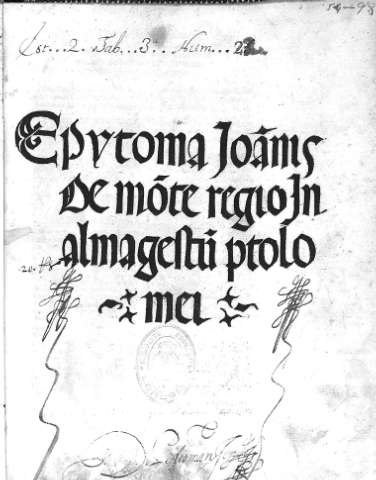 54-98
Est...2. Tab...3.. Num...2
Epytoma Joãnis
De mõte regio In
almagestũ ptolo
mei